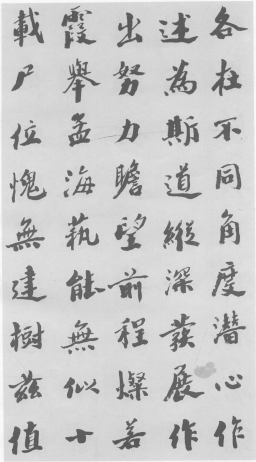 各在不同角度潛心作
述為斯道縱深發展作
出努力瞻望前程燦若
霞舉孟海蓺能無似十
載尸位愧無建樹茲值